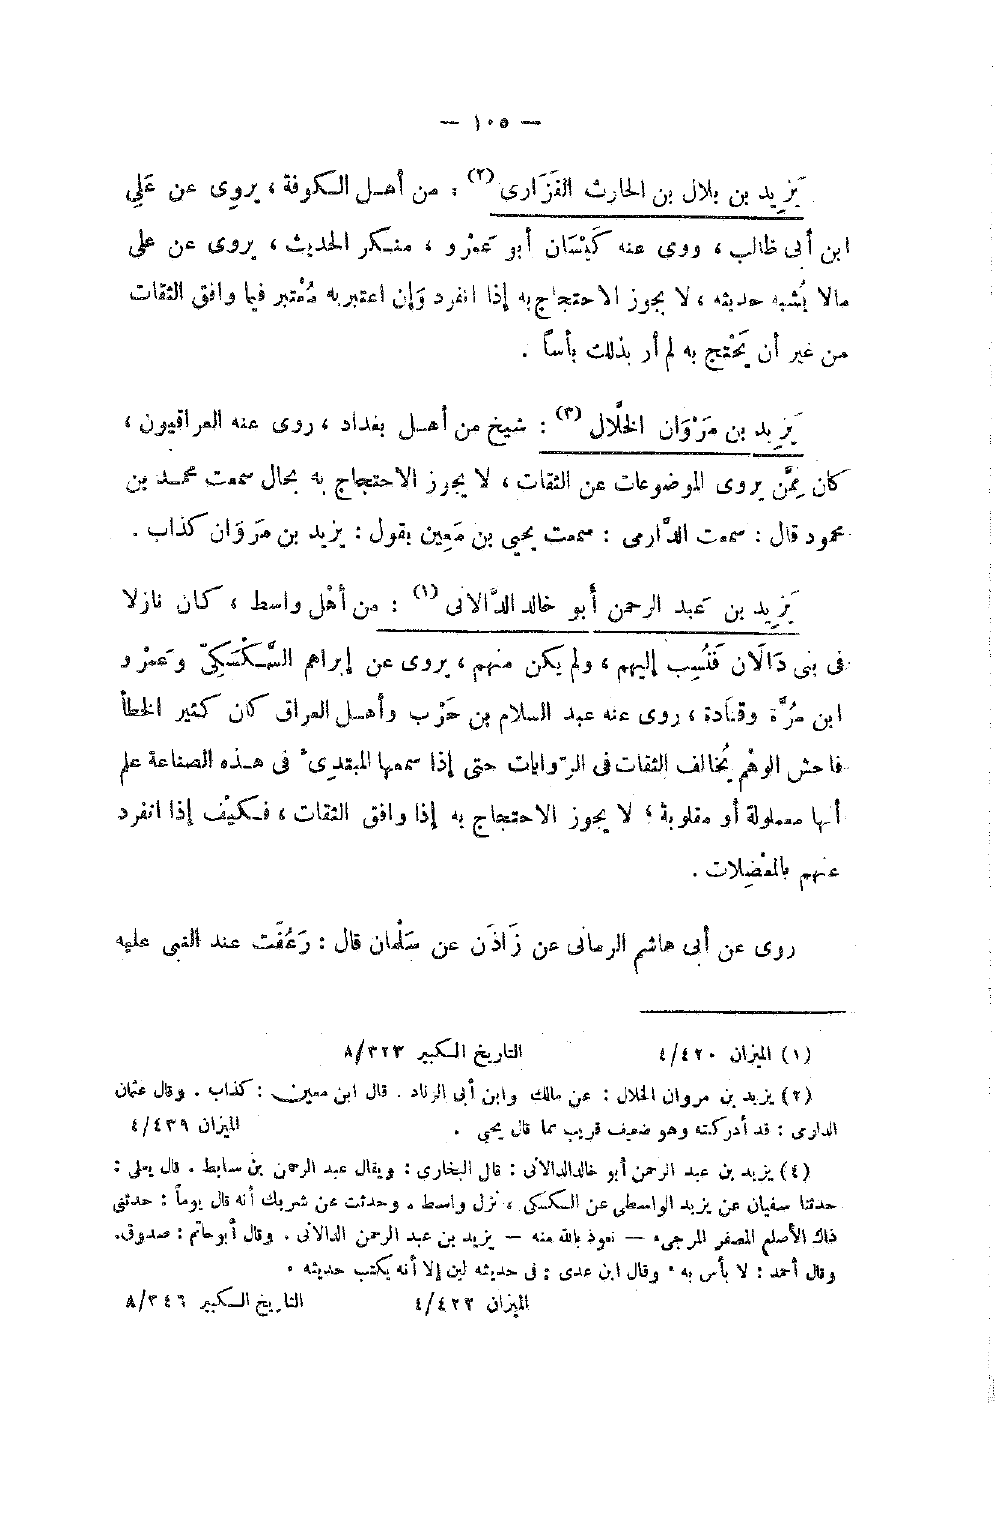 — ١٠٥ —
يَزِيد بن بلال بن الحارث الفَزَارى (٢) : من أهل الكوفة ، يروِى عن عَلِي
ابن أبى طالب ، روى عنه كَيْسَان أبو عَمْرو ، منكر الحديث ، يروى عن على
مالا يُشبه حديثه ، لا يجوز الاحتجاج به إذا انفرد وَإن اعتبر به مُعْتبر فيما وافق الثقات
من غير أن يَحْتج به لم أر بذلك بأساً .
يَزِيد بن مَرْوَان الخلَّال (٣) : شيخ من أهل بغداد ، روى عنه العراقيون ،
كان مِمَّن يروى الموضوعات عن الثقات ، لا يجوز الاحتجاج به بحال سمعت محمد بن
محمود قال : سمعت الدَّارمى : سمعت يحيى بن مَعِين يقول : يزيد بن مَروَان كذاب .
يَزِيد بن عَبد الرحمن أبو خالد الدَّالانى (١) : من أهْل واسط ، كان نازلا
فى بنى دَالَان فَنُسِب إليهم ، ولم يكن منهم ، يروى عن إبراهم السَّكْسَكِيّ وعَمْرو
ابن مُرَّة وقتادة ، روى عنه عبد السلام بن حَرْب وأهل العراق كان كثير الخطأ
فاحش الوهْم يُخالف الثقات فى الرّوايات حتى إذا سمعها المبتدِىء فى هذه الصناعة علم
أنها معمولة أو مقلوبة ؛ لا يجوز الاحتجاج به إذا وافق الثقات ، فكيْف إذا انفرد
عنهم بالمعْضِلات .
روى عن أبى هاشم الرمانى عن زَاذَن عن سَلْمان قال : رَعُفَت عند النبى عليه
(١) الميزان ٤/٤٢٠ التاريخ الكبير ٨/٣٢٣
(٢) يزيد بن مروان الخلال : عن مالك وابن أبى الزناد . قال ابن معين : كذاب . وقال عثمان
الدارى : قد أدركته وهو ضعيف قريب مما قال يحيى . الميزان ٤/٤٣٩
(٤) يزيد بن عبد الرحمن أبو خالد الدالانى : قال البخارى : ويقال عبد الرحمن بن سابط . قال يعلى :
حدثنا سفيان عن يزيد الواسطى عن السكسكى ، نزل واسط . وحدثت عن شريك أنه قال يوماً : حدثنى
ذاك الأصلم المصفر المرجىء — نعوذ بالله منه — يزيد بن عبد الرحمن الدالانى . وقال أبو حاتم : صدوق.
وقال أحمد : لا بأس به . وقال ابن عدى : فى حديثه لين إلا أنه يكتب حديثه .
الميزان ٤/٤٢٣ التاريخ الكبير ٨/٣٤٦